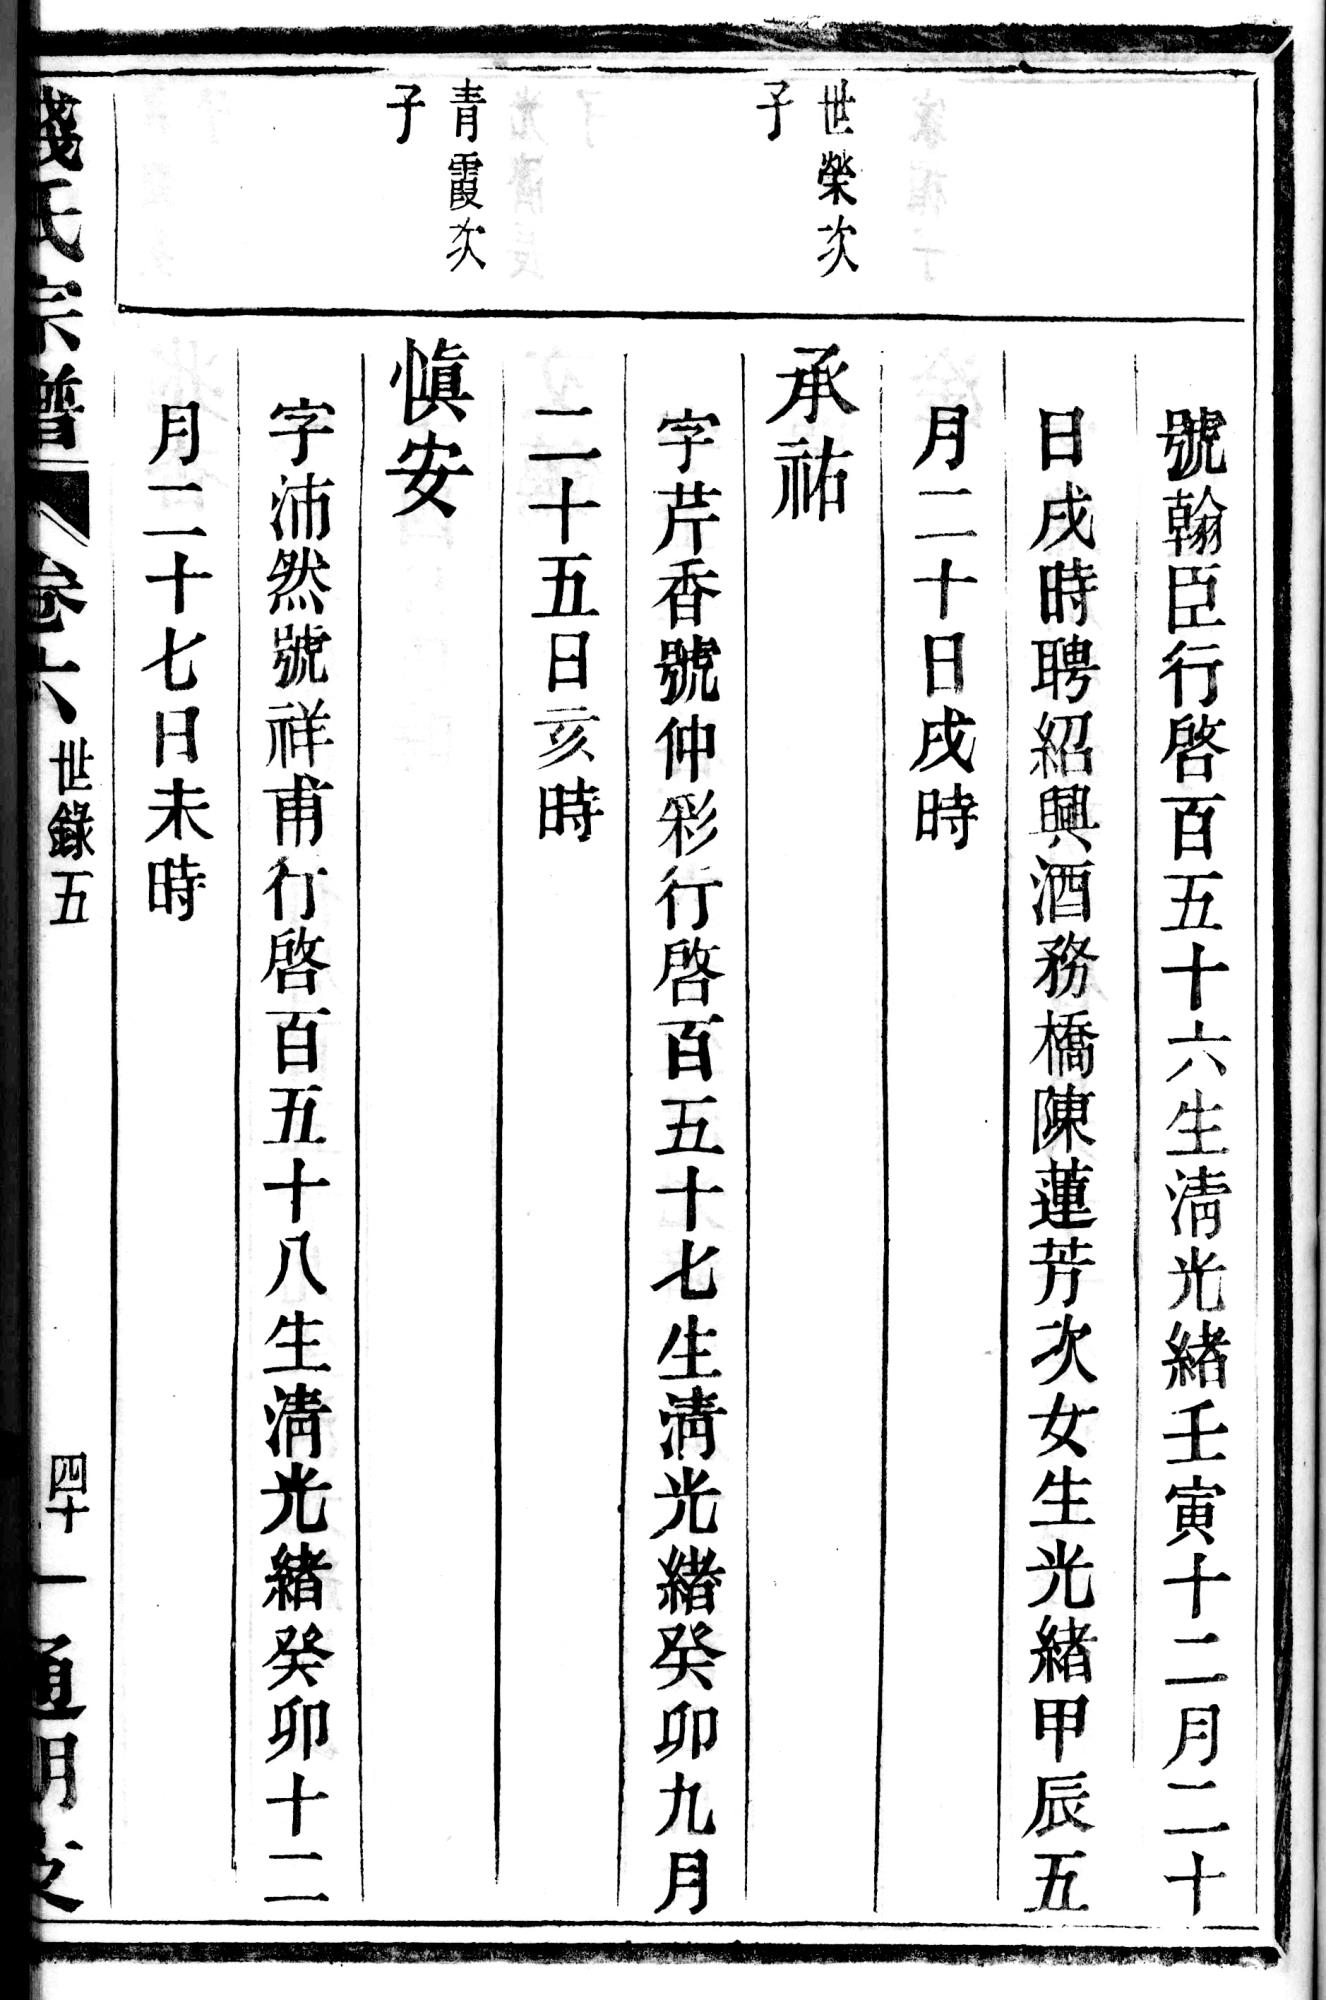 號翰臣行啓百五十六生淸光緖壬寅十二月二十
日戌時聘紹興酒務橋陳蓮芳次女生光緖甲辰五
月二十日戌時
世榮次
子
承祐
字芹香號仲彩行啓百五十七生淸光緖癸卯九月
二十五日亥時
青霞次
子
愼安
字沛然號祥甫行啓百五十八生淸光緖癸卯十二
月二十七日未時
錢氏宗譜 卷六 世錄五 四十一 通明支